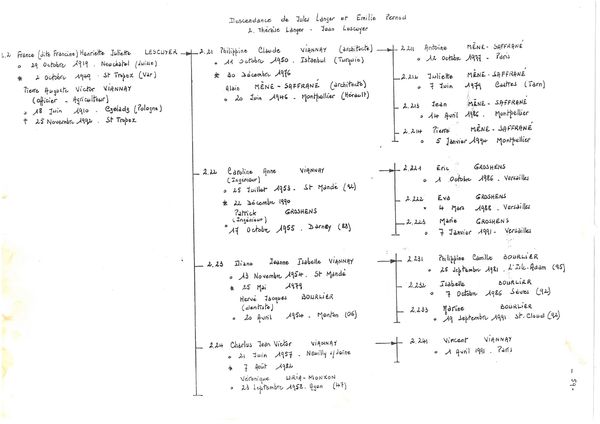 Descendance de Jules Langer et Emilie Pernod
2. Thérèse Langer - Jean Lescuyer
2.2 France (dite Francine) Henriette Juliette LESCUYER
° 29 Octobre 1919. Neuchatel (Suisse)
* 2 Octobre 1949 - St Tropez (Var)
Pierre Auguste Victor VIANNAY
(Officier - Agriculteur)
° 18 Juin 1910. (Pologne)
† 25 Novembre 1992. St Tropez
2.21 Philippine Claude VIANNAY (architecte)
° 11 Octobre 1950. Istanbul (Turquie)
* 30 Décembre 1976
Alain MÈNE-SAFFRANÉ (architecte)
° 20 Juin 1946. Montpellier (Hérault)
2.211 Antoine MÈNE-SAFFRANÉ
° 11 Octobre 1977 - Paris
2.212 Juliette MÈNE-SAFFRANÉ
° 7 Juin 1979 Castres (Tarn)
2.213 Jean MÈNE-SAFFRANÉ
° 14 Avril 1986. Montpellier
2.214 Pierre MÈNE-SAFFRANÉ
° 5 Janvier Montpellier
2.22 Caroline Anne VIANNAY
(Ingénieur)
° 25 Juillet 1953. St Mandé
* 22 Décembre
Patrick GROSHENS
(Ingénieur)
° 17 Octobre 1955. Darney (88)
2.221 Eric GROSHENS
° 1 Octobre 1986. Versailles
2.222 Eva GROSHENS
° 4 Mars 1988. Versailles
2.223 Marie GROSHENS
° 7 Janvier 1991. Versailles
2.23 Diane Jeanne Isabelle VIANNAY
° 13 Novembre 1954. St Mandé
* 25 Mai 1979
Hervé Jacques BOURLIER
(dentiste)
° 20 Avril 1954. Menton (06)
2.231 Philippine Camille BOURLIER
° 25 Septembre 1981. L'Isle-Adam (95)
2.232 Isabelle BOURLIER
° 7 Octobre 1986 Sèvres (92)
2.233 Marine BOURLIER
° 19 Septembre 1991. St.Cloud (92)
2.24 Charles Jean Victor VIANNAY
° 21 Juin 1957. Neuilly s/Seine
* 7 Août 1982
Véronique
° 23 Septembre 1958. Agen (47)
2.241 Vincent VIANNAY
° 1 Avril Paris